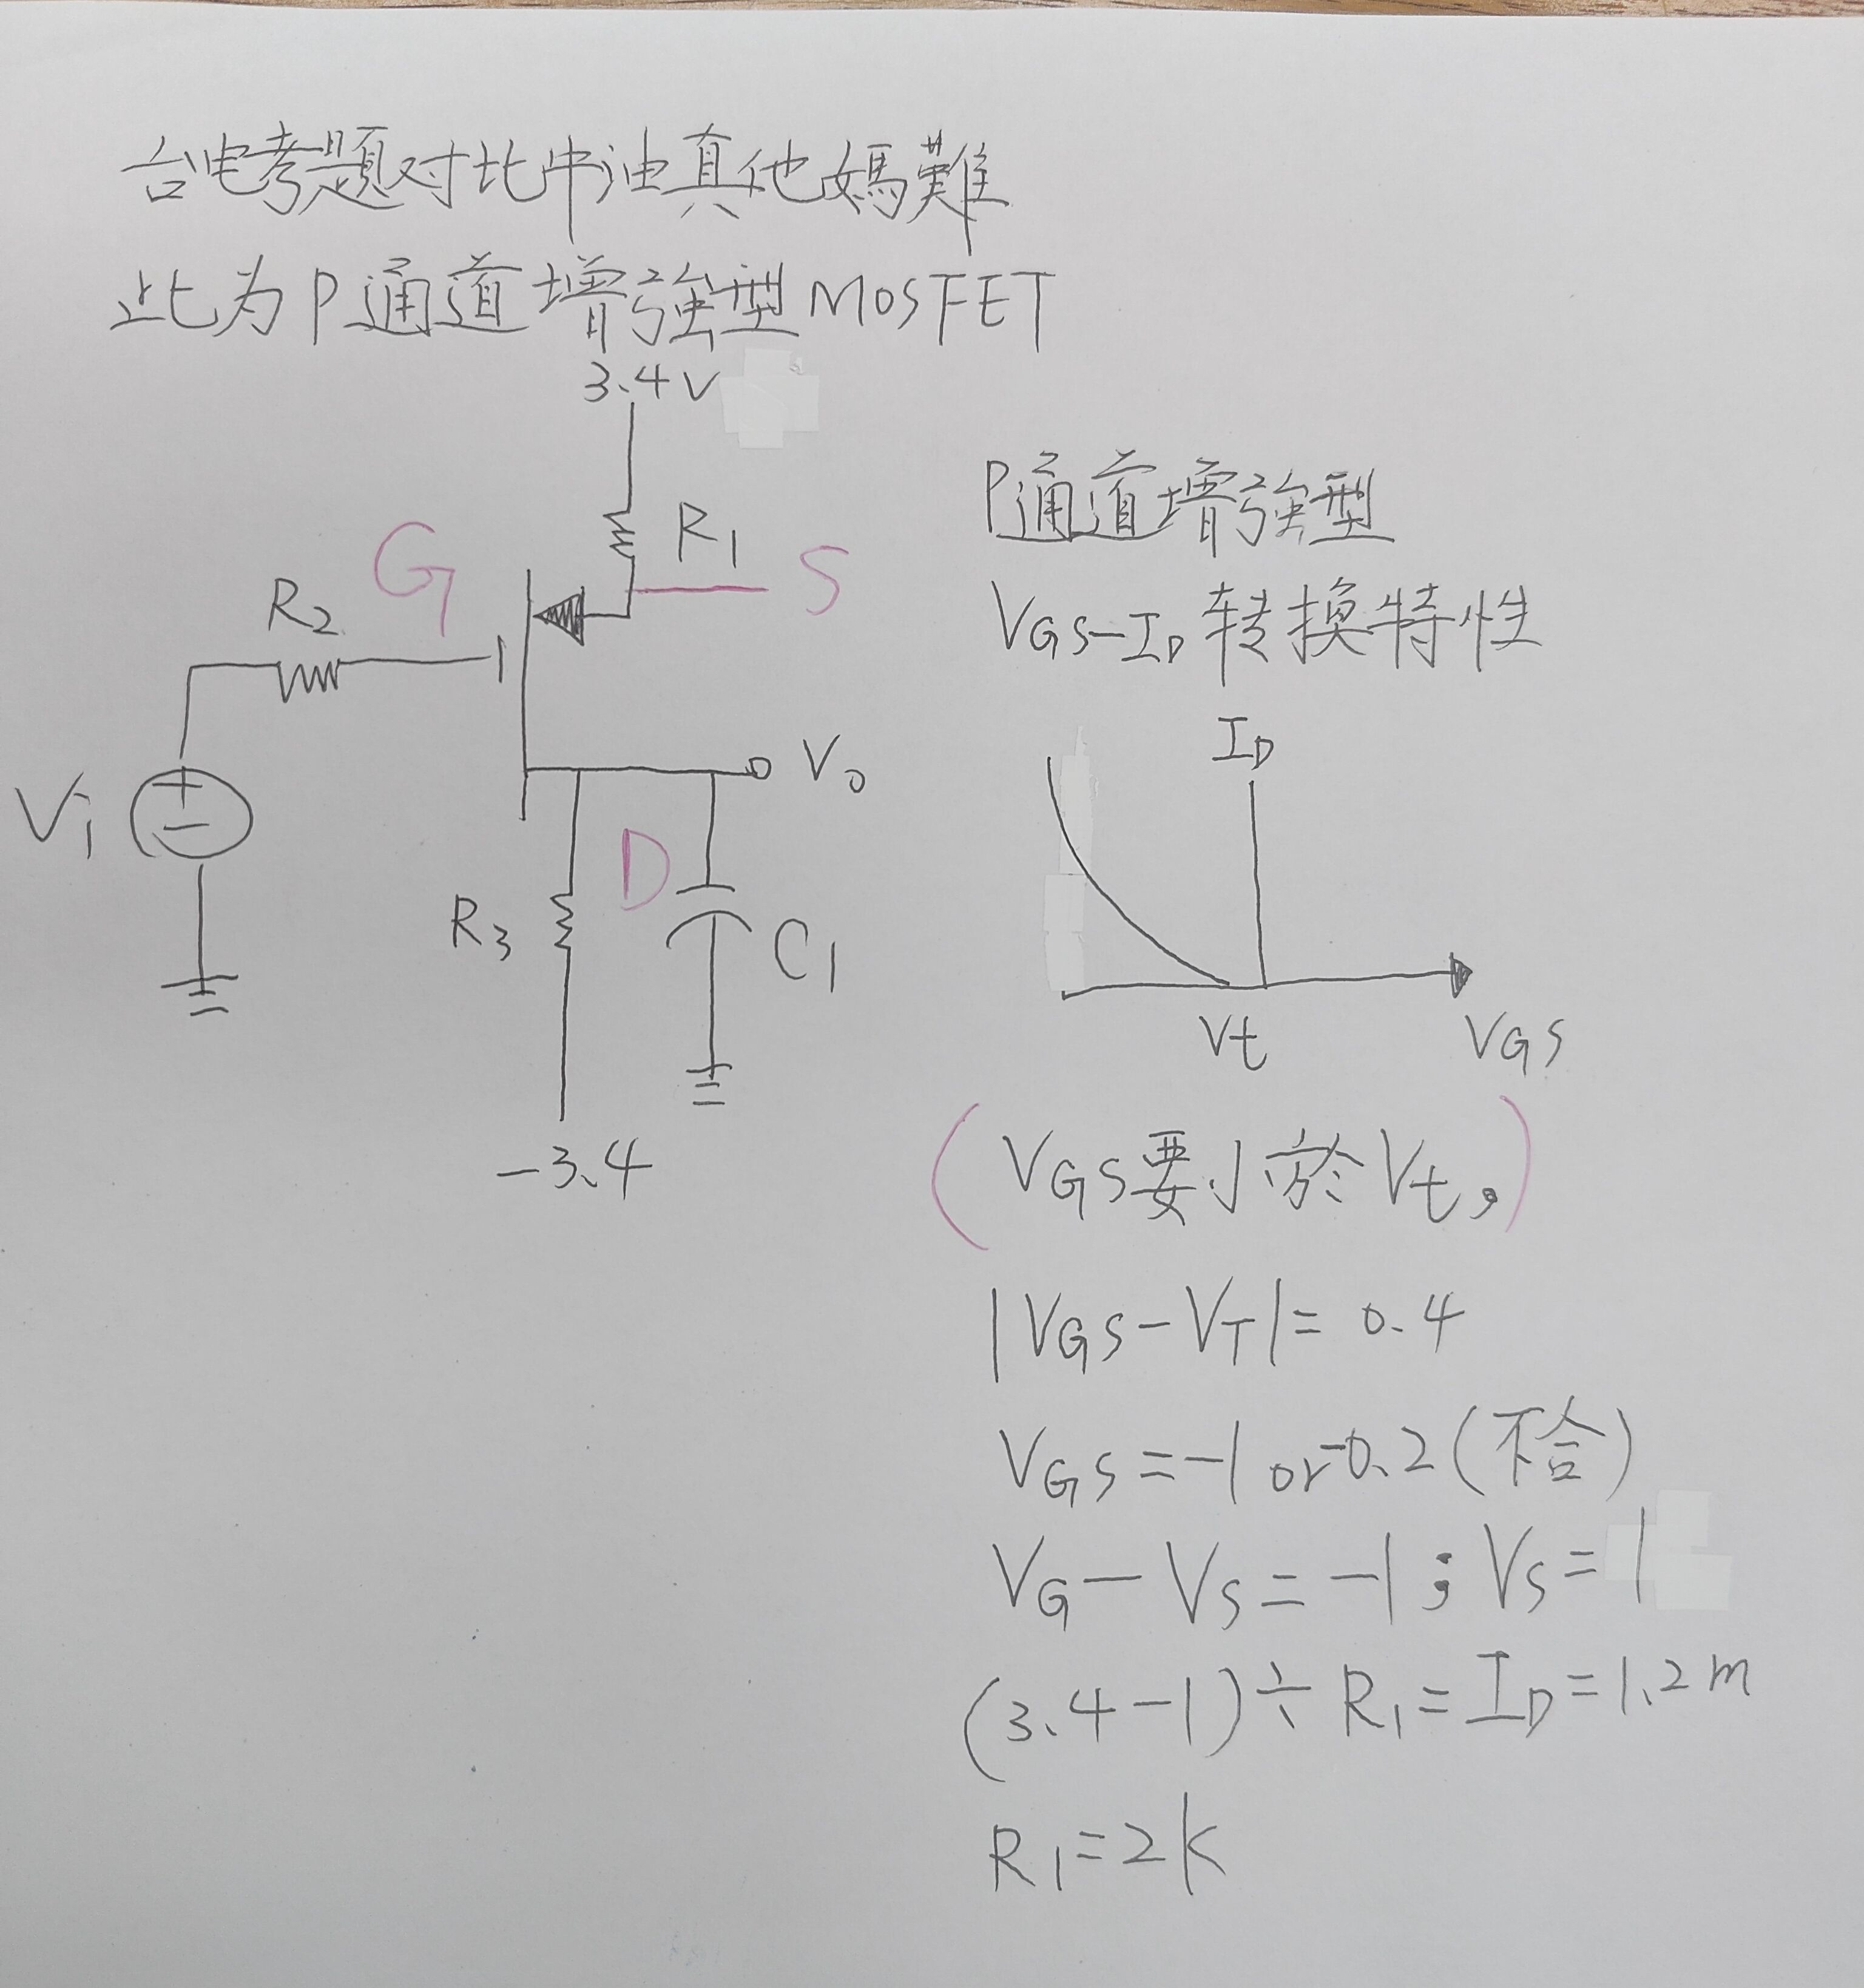 台电考題对比中油真他媽難
此为P通道增強型MOSFET
3.4V
R1
S
G
R2
Vi
Vo
D
R3
C1
-3.4
P通道增強型
VGS-ID转換特性
ID
Vt
VGS
(VGS要小於Vt。)
|VGS-VT|=0.4
VGS=-1 or -0.2(不合)
VG-VS=-1;VS=1
(3.4-1)÷R1=ID=1.2m
R1=2k